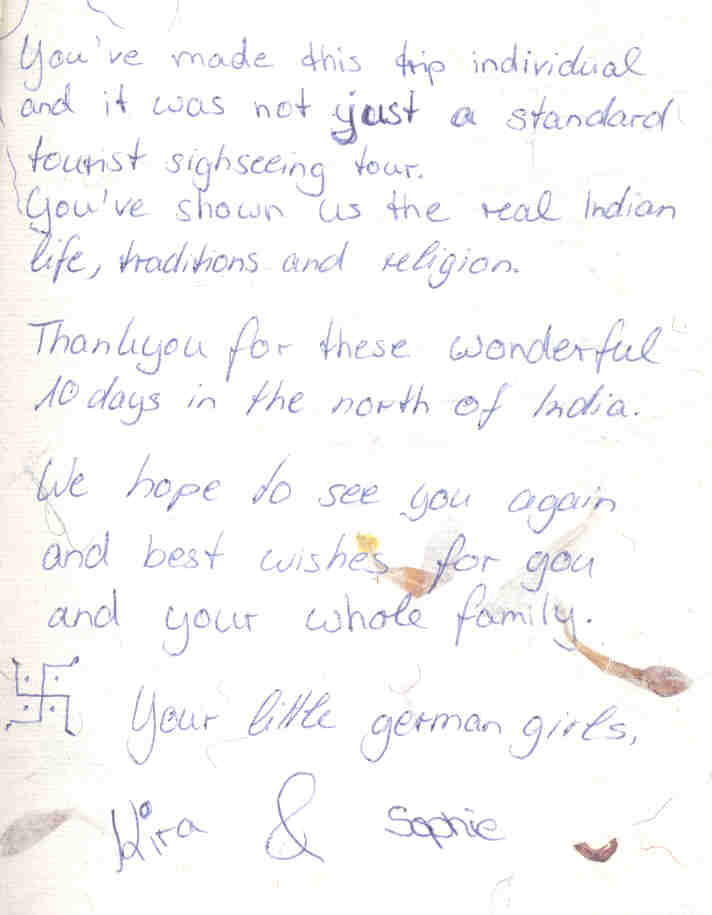 You've made this trip individual
and it was not just a standard
tourist sighseeing tour.
You've shown us the real Indian
life, traditions and religion.
Thankyou for these wonderful
10 days in the north of India.
We hope to see you again
and best wishes for you
and your whole family.
Your little german girls,
Kira & Sophie